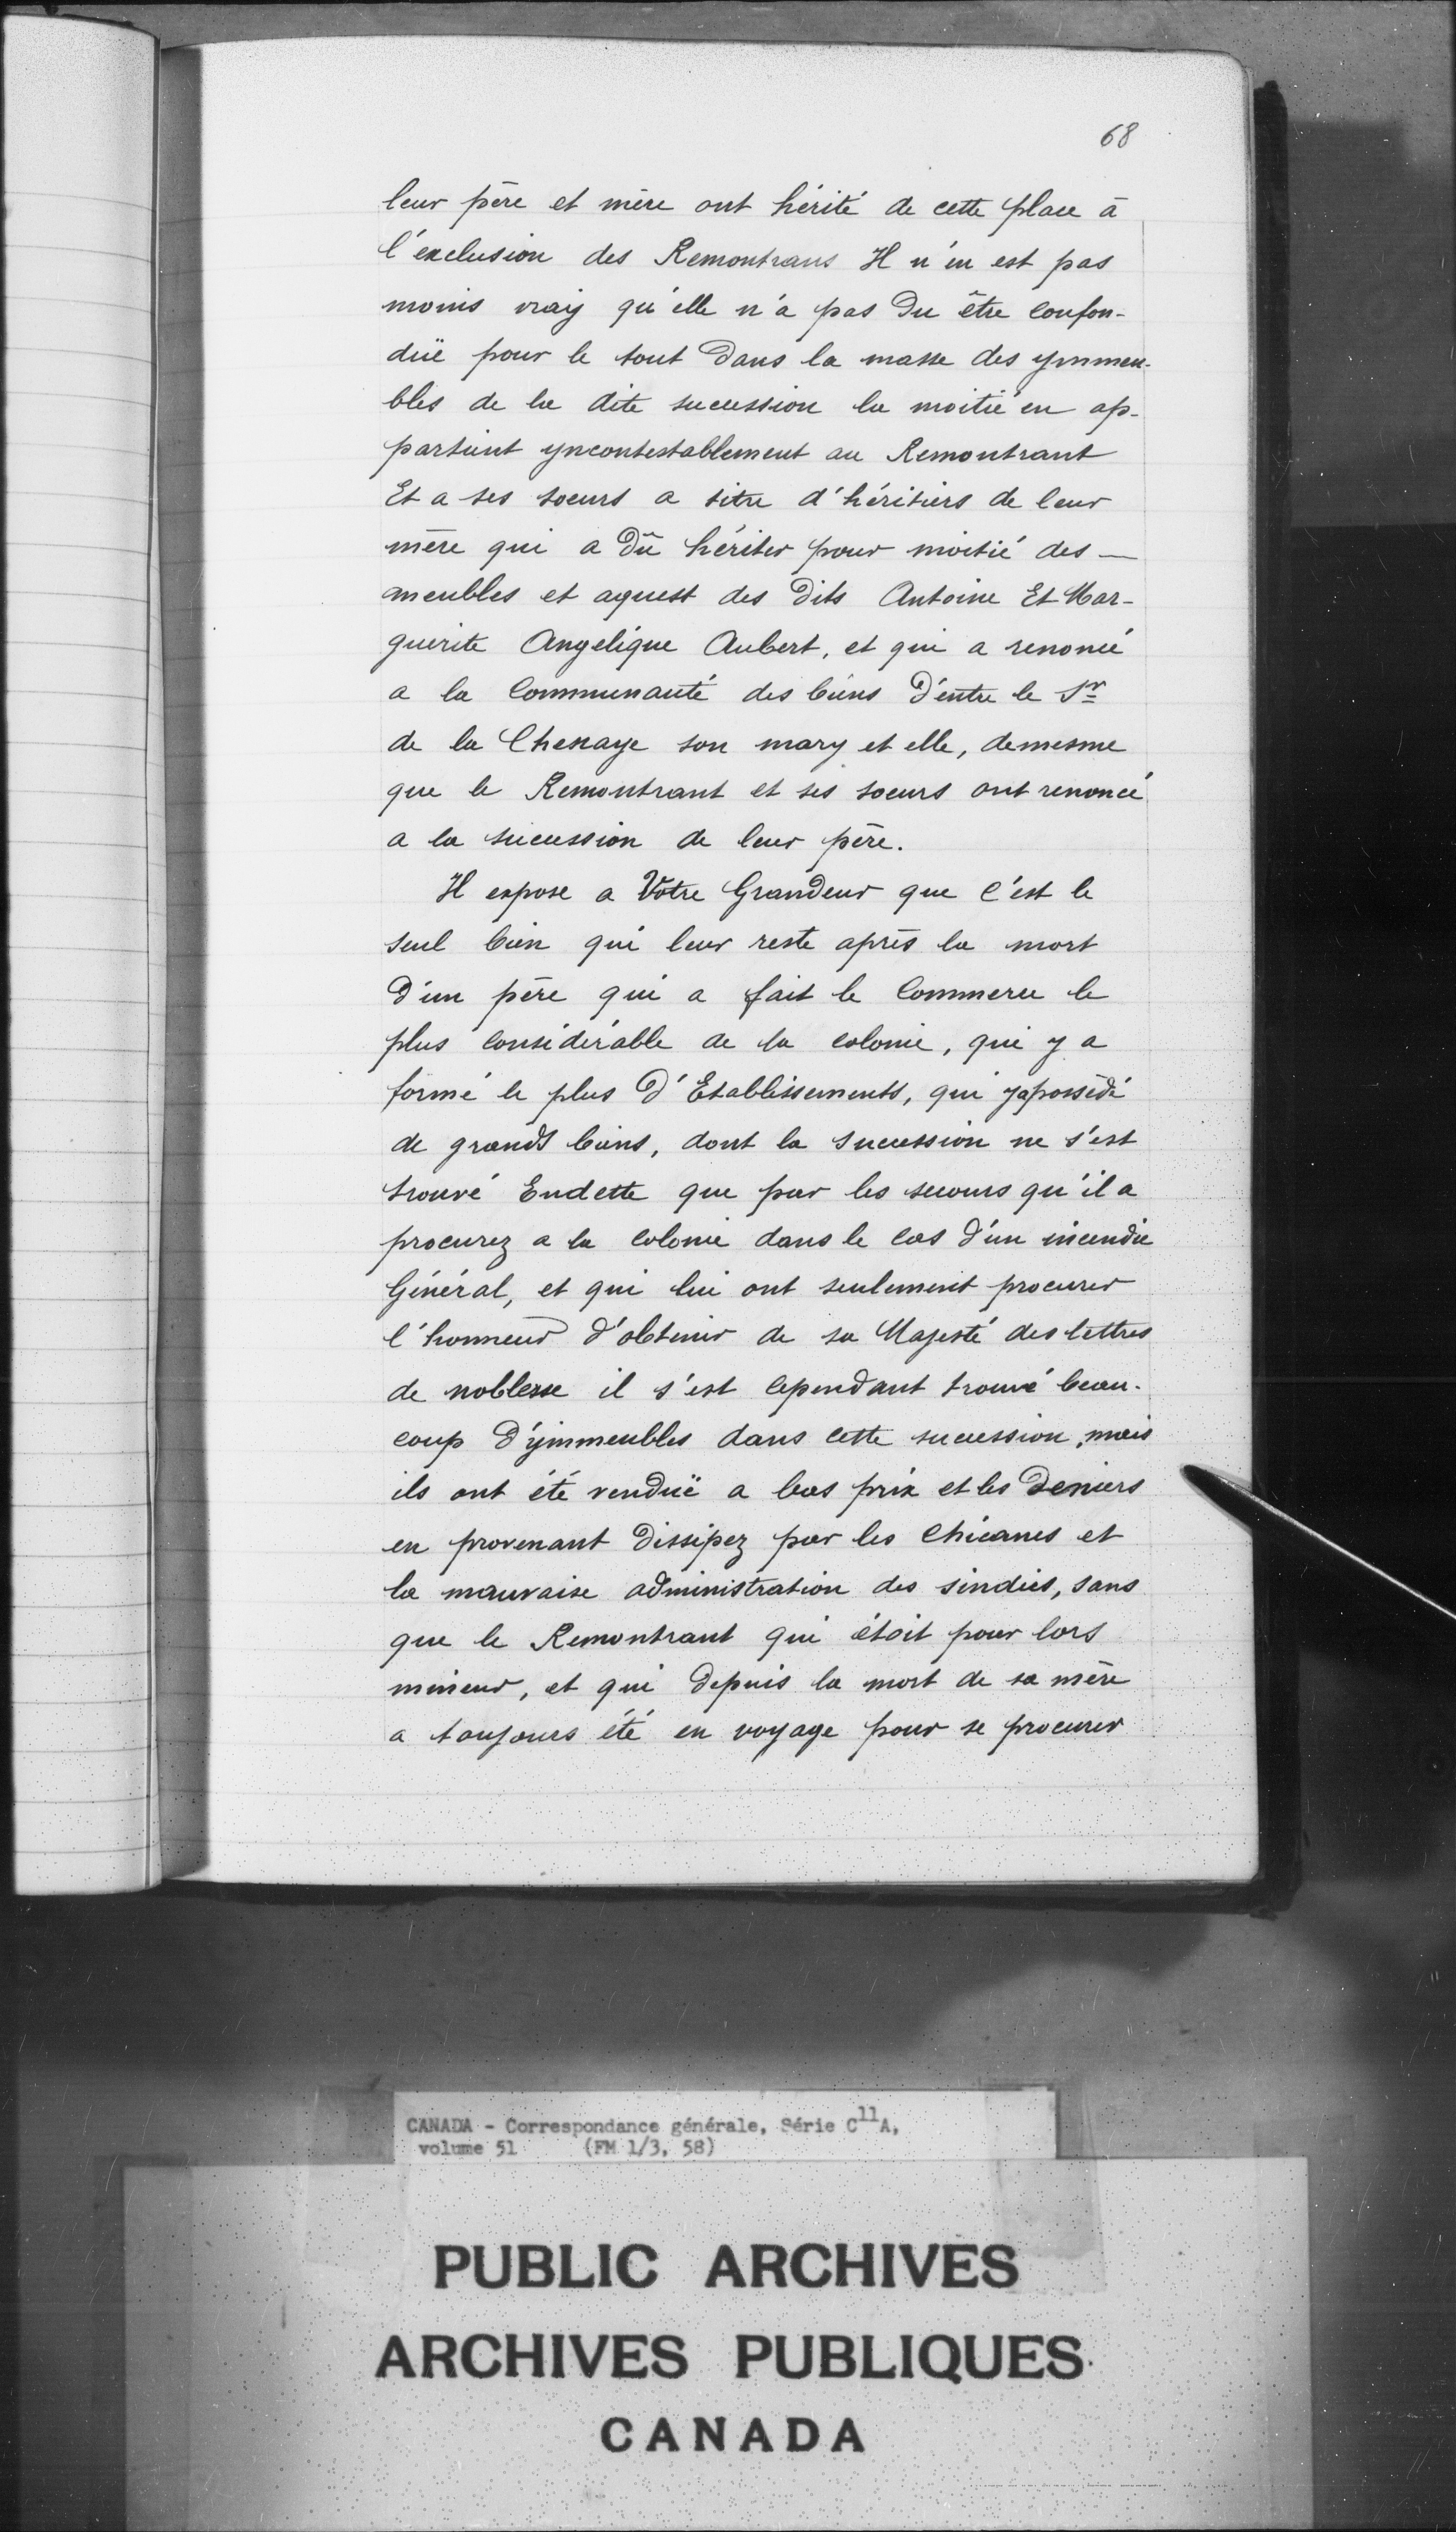 68
leur père et mère ont hérité de cette place à
l'exclusion des Remontrans Il n'en est pas
moins vray qu'elle n'a pas Du être confon-
düe pour le tout Dans la masse des ymmeu-
bles de la dite sucession la moitié en ap-
partient yncontestablement au Remontrant
Et a ses soeurs a titre d'héritiers de leur
mère qui a Dû hériter pour moitié des —
meubles et aquest des Dits Antoine Et Mar-
guerite Angelique Aubert, et qui a renoncé
a la Communauté des biens D'entre le Sr
de la Chenaye son mary et elle, demesme
que le Remontrant et ses soeurs ont renoncé
a la sucession de leur père.
Il expose a Votre Grandeur que c'est le
seul bien qui leur reste après la mort
D'un père qui a fait le Commerce le
plus considérable de la colonie, qui y a
formé le plus D'Etablissements, qui y a possédé
de grands biens, dont la sucession ne s'est
trouvé Endette que par les secours qu'il a
procurez a la colonie dans le cas D'un incendie
Général, et qui lui ont seulement procurer
l'honneur d'obtenir de sa Majesté des lettres
de noblesse il s'est cependant trouvé beau-
coup D'ymmeubles dans cette sucession, mais
ils ont été venduë a bas prix et les Deniers
en provenant Dissipez par les Chicanes et
la mauvaise administration des sindics, sans
que le Remontrant qui étoit pour lors
mineur, et qui Depuis la mort de sa mère
a toujours été en voyage pour se procurer
CANADA - Correspondance générale, Série C11A,
volume 51 (FM 1/3, 58)
PUBLIC ARCHIVES
ARCHIVES PUBLIQUES
CANADA